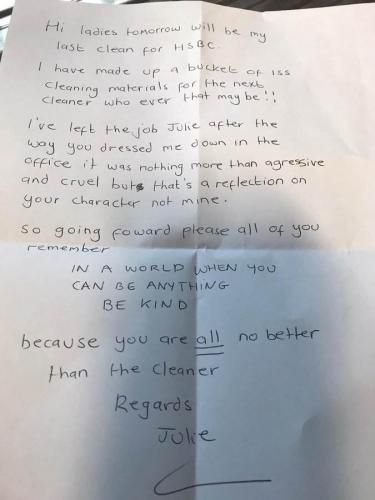 Hi ladies tomorrow will be my
last clean for HSBC.
I have made up a bucket of ISS
cleaning materials for the next
cleaner who ever that may be!!
I've left the job Julie after the
way you dressed me down in the
office it was nothing more than agressive
and cruel but that's a reflection on
your character not mine.
So going foward please all of you
remember
IN A WORLD WHEN YOU
CAN BE ANYTHING
BE KIND
because you are all no better
than the cleaner
Regards
Julie